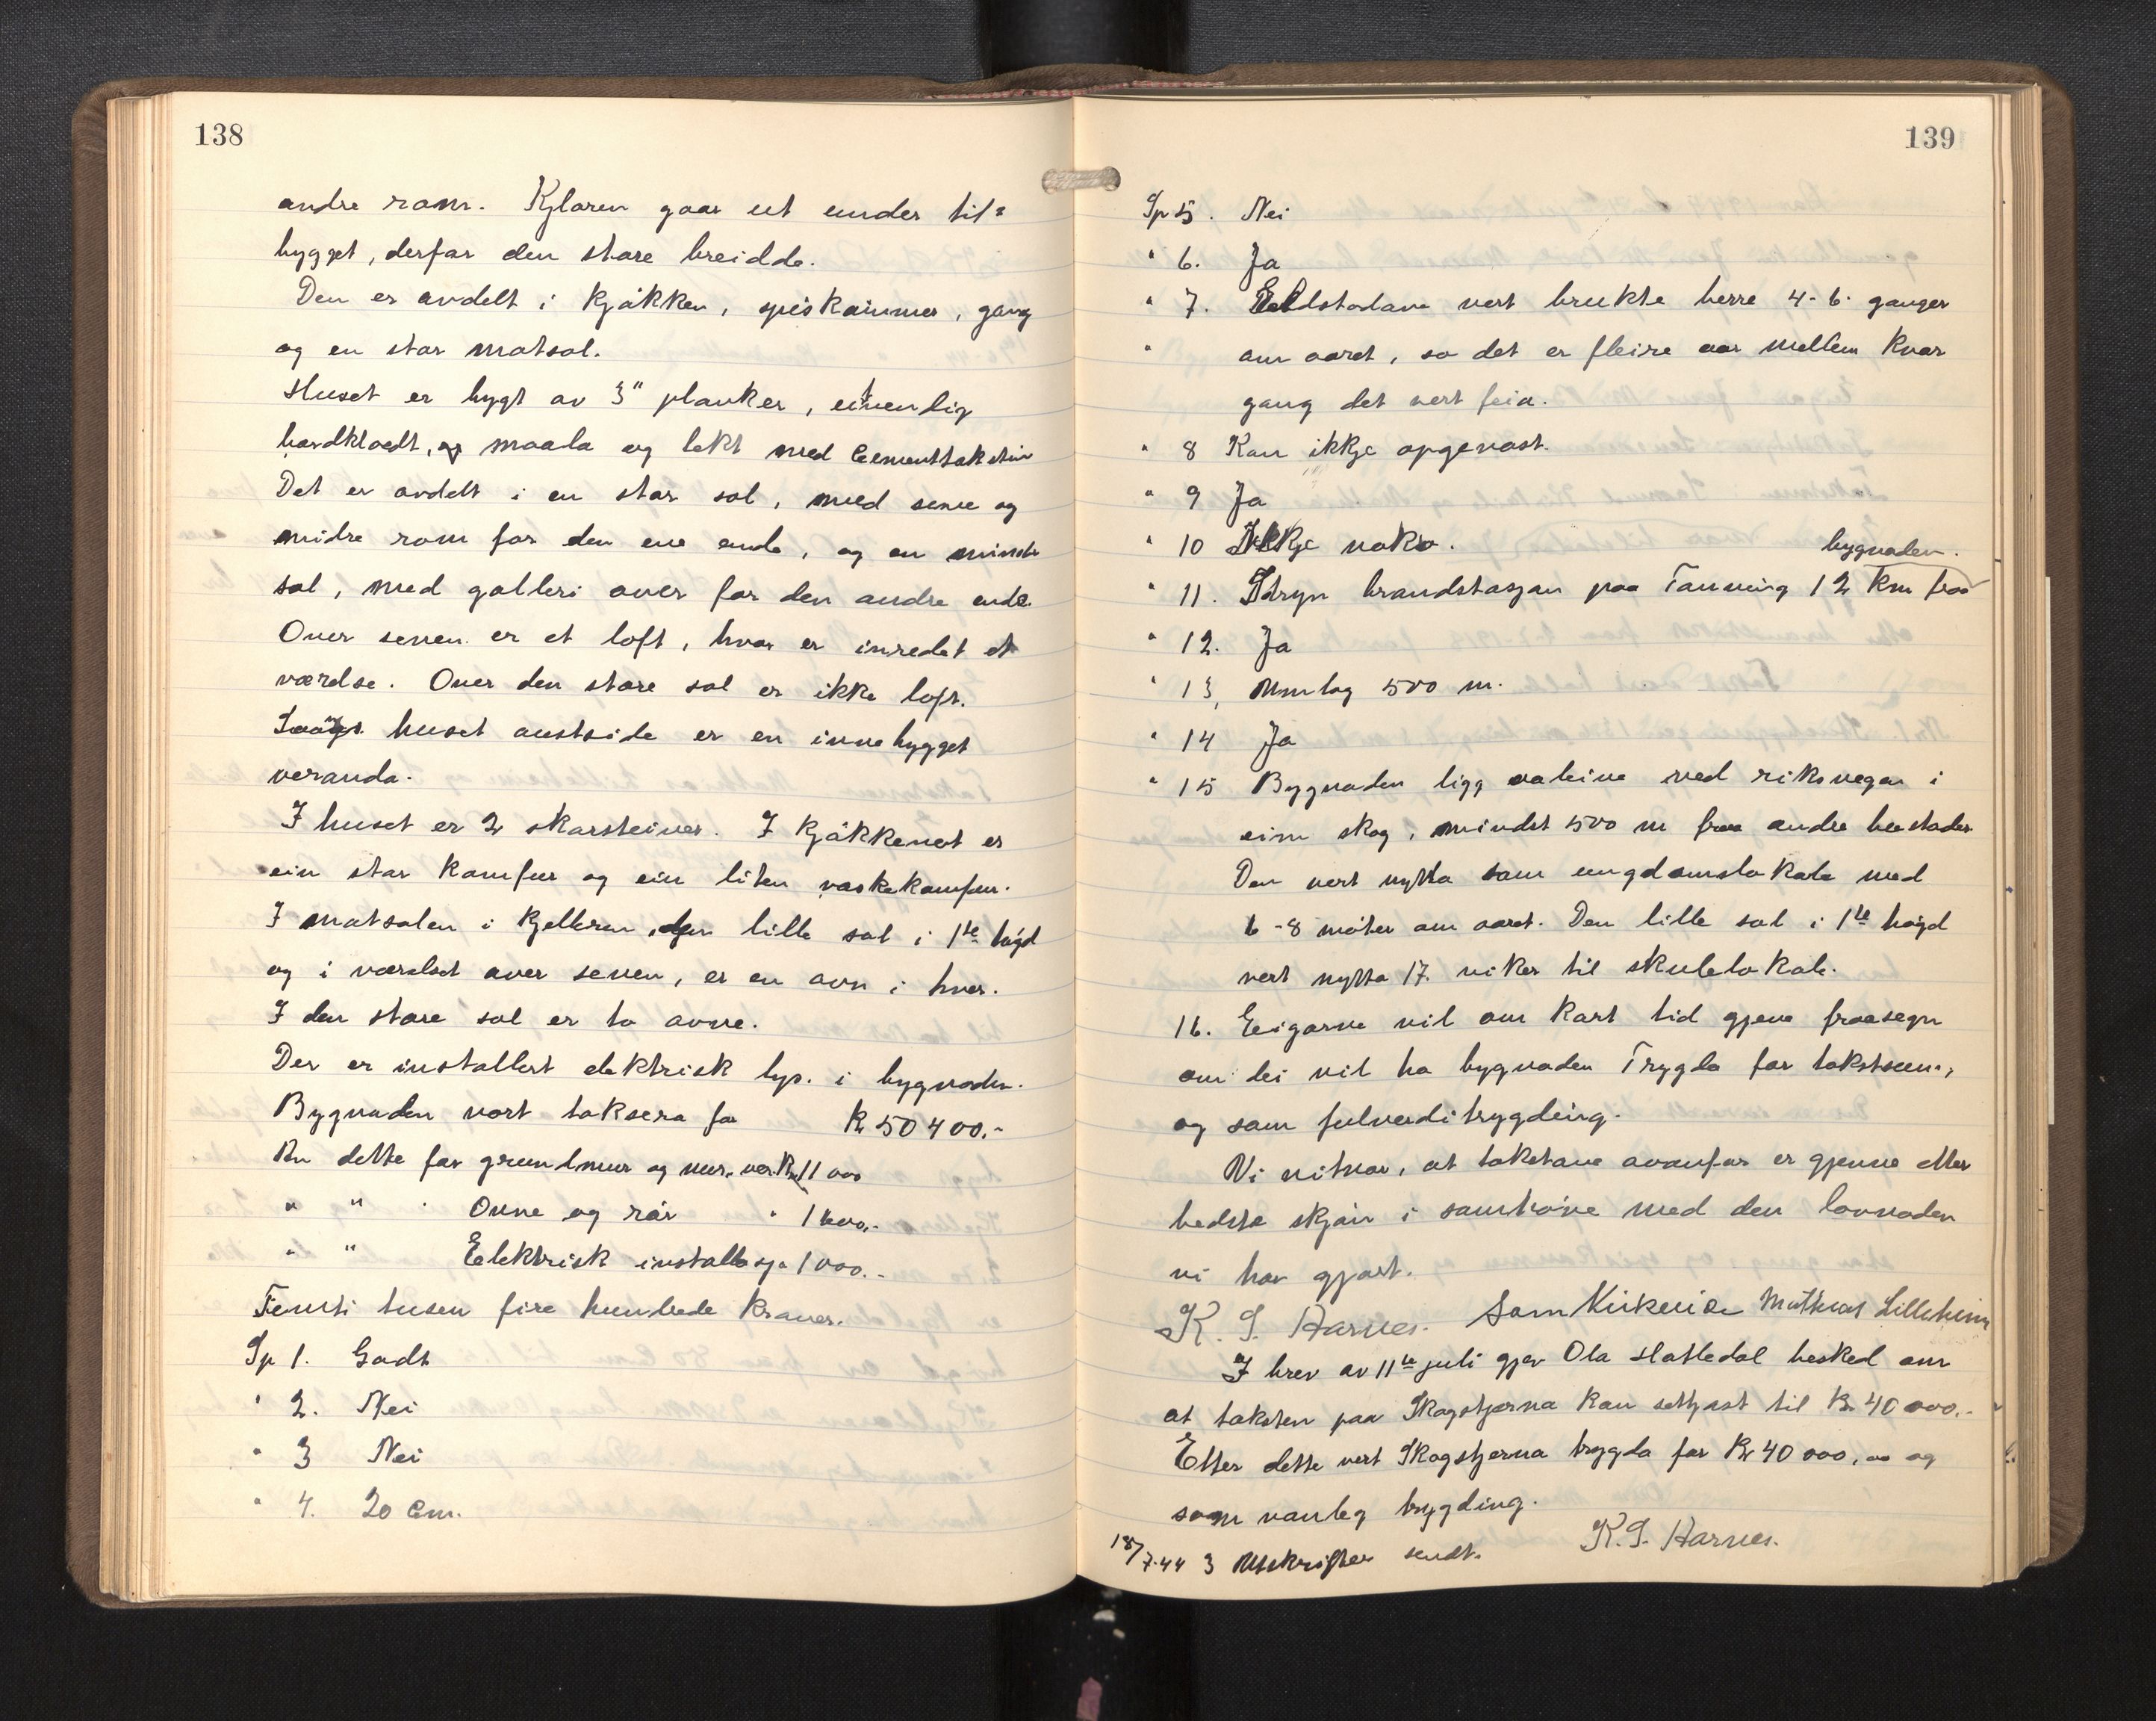 138
andre rom. Kjlaren gaar ut under til=
bygget, derfor den store breidde.
Den er avdelt i kjøkken, spiskammer, gang
og en stor matsal.
Huset er bygt av 3" planker, utvendig
bordklædt, maala og tekt med Cementtakstein
Det er avdelt i en stor sal, med sene og
midre rom for den ene ende, og en mindre
sal, med galleri over for den andre ende.
Over senen er et loft, hvor er inredet et
værelse. Over den store sal er ikke loft.
Langs huset austside er en innebygget
veranda.
I huset er 2 skorsteiner. I kjøkkenet er
ein stor komfur og ein liten vaskekomfur.
I matsalen i kjelleren, den lille sal i 1ste høgd
og i værelset over senen, er en ovn i hver.
I den store sal er to ovne.
Der er installert elektrisk lys. i bygnaden.
Bygnaden vart taksera for Kr 50400.-
Av dette for grunnmur og mur. ver. Kr 11000
" " " Ovne og rør " 1600.-
" " Elektrisk installasje 1000.-
Femti tusen fire hundrede kroner.
Sp 1. Godt
" 2. Nei
" 3 Nei
" 4. 20 Cm.
139
Sp 5. Nei
" 6. Ja
" 7. Eldstadane vert brukte berre 4-6 ganger
" om aaret, so det er fleire aar mellem kvar
gang det vert feia.
" 8 Kan ikkje opgevast.
" 9 Ja
" 10 Ikkje noko.
bygnaden.
" 11. Stryn brandstasjon paa Tonning 12 km fraa
" 12. Ja
" 13, Umlag 500 m.
" 14 Ja
" 15 Bygnaden ligg aaleine ved riksvegen i
ein skog, mindst 500 m fraa andre bustader
Den vert nytta som ungdomslokale med
6-8 møter om aaret. Den lille sal i 1ste høgd
vert nytta 17. viker til skulelokale.
16. Eigarne vil om kort tid gjeve fraasegn
om dei vil ha bygnaden Trygda for takstsum,
og som fulverditrygding.
Vi vitnar, at takstane ovanfor er gjevne etter
bedste skjøn i samhøve med den lovnaden
vi har gjort.
K. S. Harnes. Sam Kirkeide Mathias Lilleheim
I brev av 11te juli gjev Ola Hatledal besked om
at taksten paa Skogstjerna kan setjast til Kr 40000.-
Etter dette vert Skogstjerna trygda for Kr 40000,00 og
som vanleg trygding.
K. S. Harnes.
18/7-44 3 Utskrifter sendt.